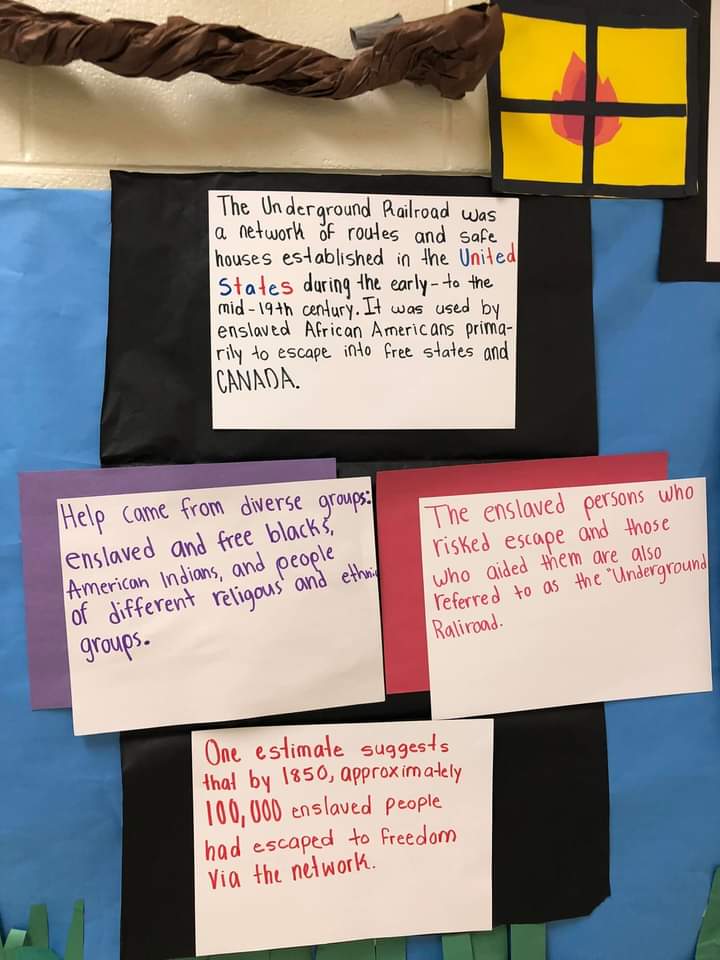 The Underground Railroad was
a network of routes and safe
houses established in the United
States during the early-to the
mid-19th century. It was used by
enslaved African Americans prima-
rily to escape into free states and
CANADA.
Help came from diverse groups:
enslaved and free blacks,
American Indians, and people
of different religous and ethnic
groups.
The enslaved persons who
risked escape and those
who aided them are also
referred to as the "Underground
Raliroad.
One estimate suggests
that by 1850, approximately
100,000 enslaved people
had escaped to freedom
via the network.